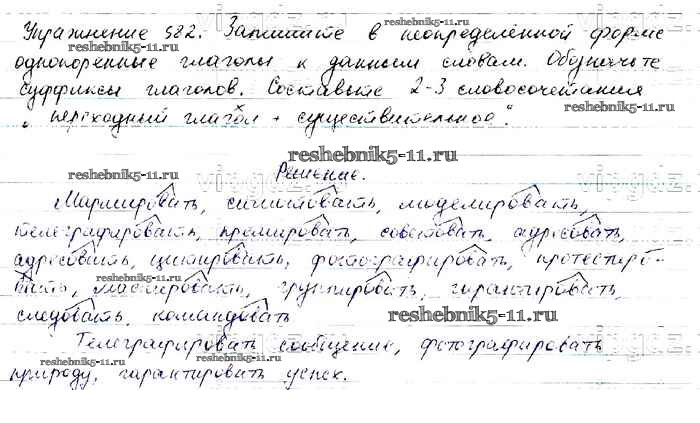 Упражнение 582. Запишите в неопределённой форме
однокоренные глаголы к данным словам. Обозначьте
суффиксы глаголов. Составьте 2-3 словосочетания
„переходный глагол + существительное".
Решение.
Маршировать, симпатизировать, моделировать,
телеграфировать, премировать, советовать, адресовать,
адресовать, цитировать, фотографировать, протестиро-
вать, массировать, группировать, гарантировать,
следовать, командовать
Телеграфировать сообщение, фотографировать
природу, гарантировать успех.
reshebnik5-11.ru
reshebnik5-11.ru
reshebnik5-11.ru
reshebnik5-11.ru
reshebnik5-11.ru
reshebnik5-11.ru
reshebnik5-11.ru
reshebnik5-11.ru
reshebnik5-11.ru